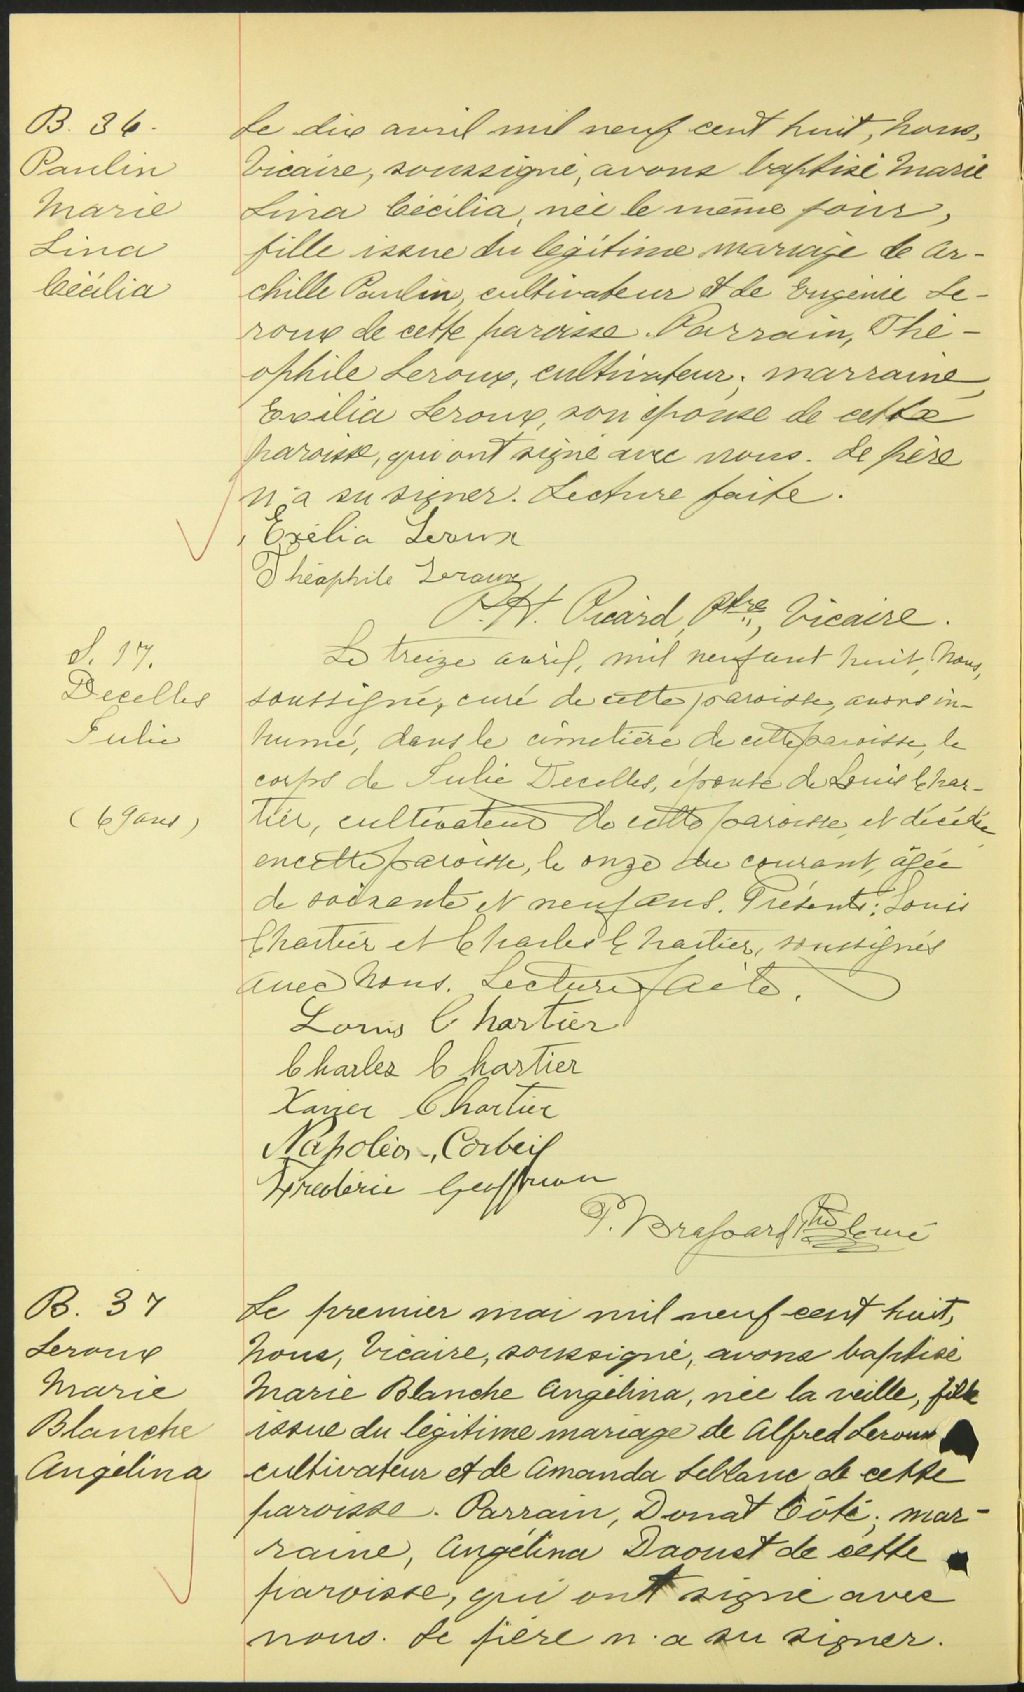 B. 36.
Paulin
Marie
Lina
Cécilia
Le dix avril mil neuf cent huit, Nous,
Vicaire, soussigné, avons baptisé Marie
Lina Cécilia, née le même jour,
fille issue du légitime mariage de Ar-
chille Paulin, cultivateur et de Eugénie Le-
roux de cette paroisse. Parrain, Thé-
ophile Leroux, cultivateur; marraine,
Exilia Leroux, son épouse de cette
paroisse, qui ont signé avec nous. Le père
n'a su signer. Lecture faite.
Exélia Leroux
Théophile Leroux
P.H. Picard, Ptre, Vicaire.
S. 17.
Decelles
Julie
(69 ans)
Le treize avril, mil neuf cent huit, Nous,
soussigné, curé de cette paroisse, avons in-
humé, dans le cimetière de cette paroisse, le
corps de Julie Decelles, épouse de Louis Char-
tier, cultivateur de cette paroisse, et décédée
en cette paroisse, le onze du courant, âgée
de soixante et neuf ans. Présents: Louis
Chartier et Charles Chartier, soussignés
avec Nous. Lecture faite.
Louis Chartier
Charles Chartier
Xavier Chartier
Napoléon Corbeil
Frédéric Geoffrion
P. Brassard Ptre Curé
B. 37
Leroux
Marie
Blanche
Angélina
Le premier mai mil neuf cent huit,
Nous, Vicaire, soussigné, avons baptisé
Marie Blanche Angélina, née la veille, fille
issue du légitime mariage de Alfred Leroux
cultivateur et de Amanda Leblanc de cette
paroisse. Parrain, Donat Côté; mar-
raine, Angélina Daoust de cette
paroisse, qui ont signé avec
nous. Le père n'a su signer.